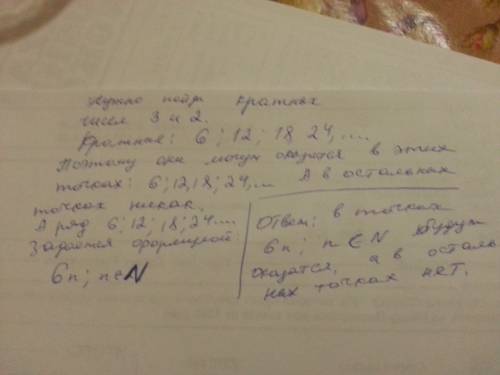 Нужно найти кратных
чисел 3 и 2.
Кратные: 6; 12; 18 24, ....
Поэтому они могут оказатся в этих
точках: 6; 12, 18; 24, ... А в остальных
точках никак.
А ряд 6; 12; 18; 24 ....
Задается формулой
6n; n∈N
Ответ: в точках
6n; n ∈ N будут
оказатся, а в осталь
ных точках нет.